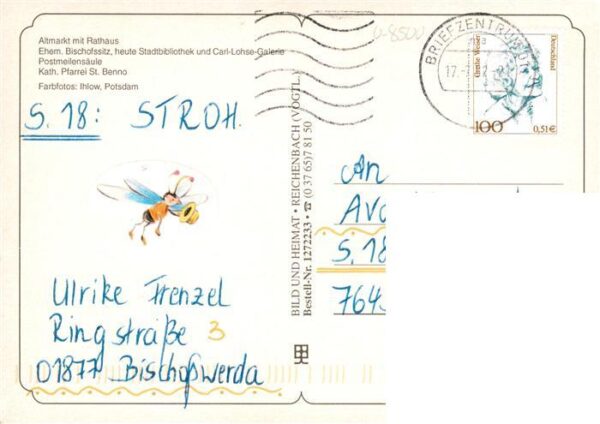 Altmarkt mit Rathaus
Ehem. Bischofssitz, heute Stadtbibliothek und Carl-Lohse-Galerie
Postmeilensäule
Kath. Pfarrei St. Benno
Farbfotos: Ihlow, Potsdam
S. 18: STROH
Ulrike Frenzel
Ringstraße 3
01877 Bischofswerda
BILD UND HEIMAT • REICHENBACH (VOGTL.)
Bestell-Nr. 1272233 • ☎ (0 37 65) 7 81 50
BRIEFZENTRUM 01
17.
Grethe Weiser
Deutschland
100
0,51€
An
S. 18
764